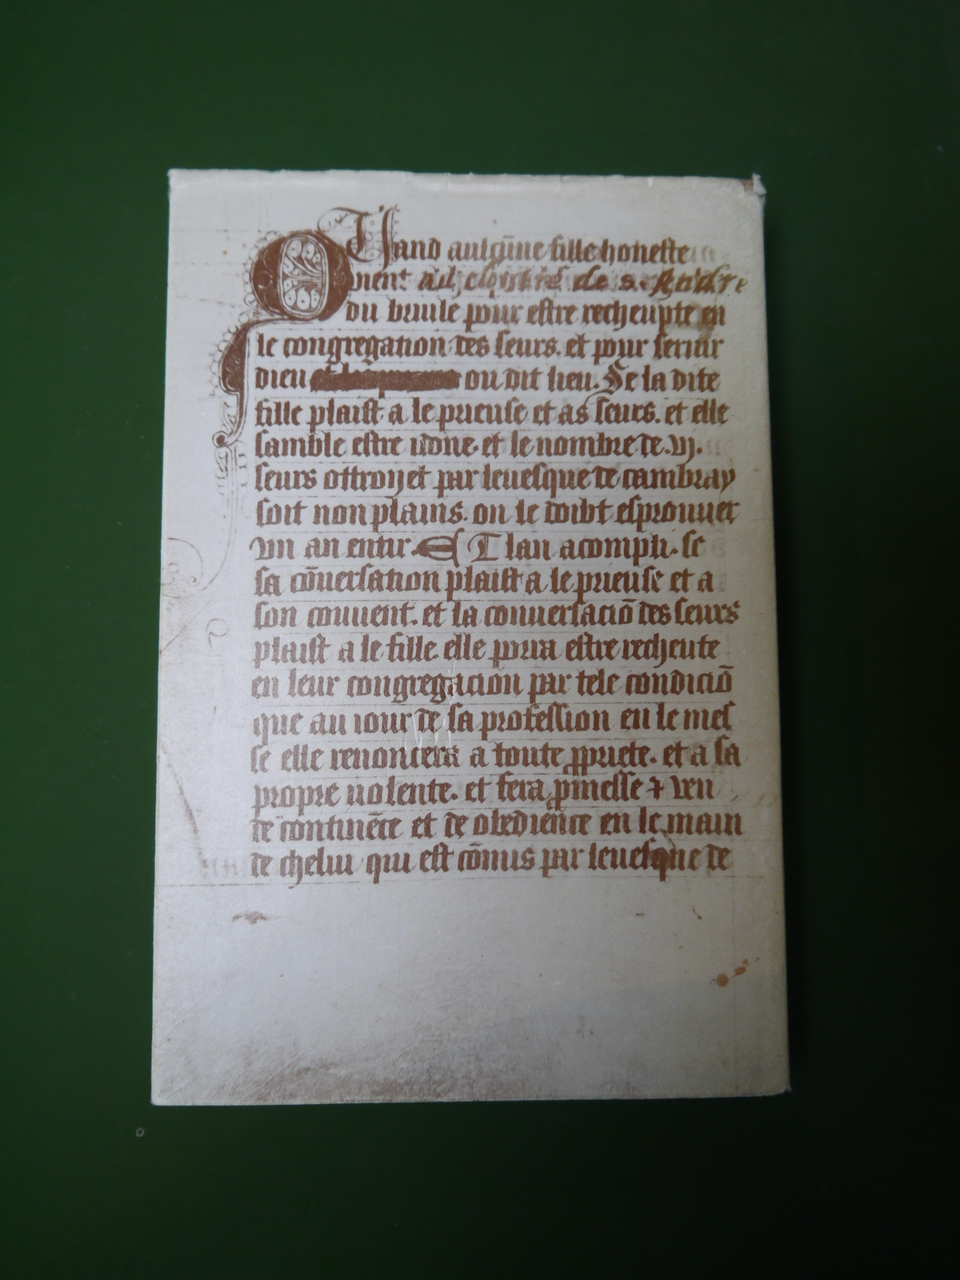 Quand aulcūne fille honeste
vient
du bruile pour estre recheupte en
le congregation des seurs. et pour seruir
dieu ou dit lieu. Se la dite
fille plaist a le prieuse et as seurs. et elle
samble estre ydone. et le nombre de .vj.
seurs ottroyet par leuesque de cambray
soit non plains. on le doibt esprouuer
vn an entir. Et lan acompli. se
sa cōuersation plaist a le prieuse et a
son couuent. et la conuersaciō des seurs
plaist a le fille. elle pora estre recheute
en leur congregacion par tele condiciō
que au iour de sa profession en le mes
se elle renoncera a toute ꝓpriete. et a sa
propre uolente. et fera ꝓmesse ⁊ veu
de continēce et de obediēce en le main
de chelui qui est cōmis par leuesque de